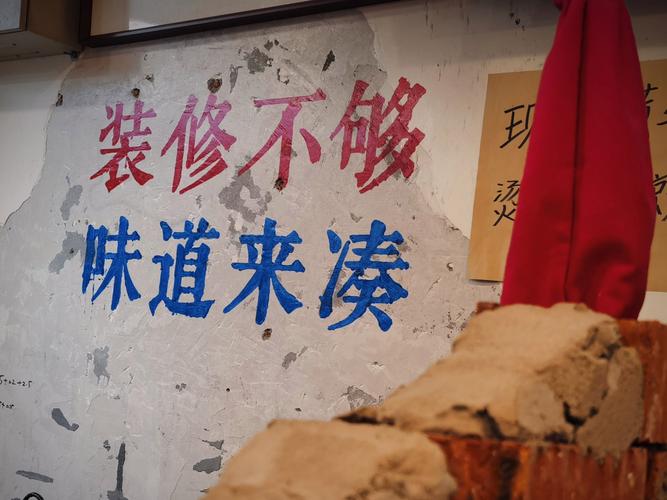 装修不够
味道来凑
现
烫